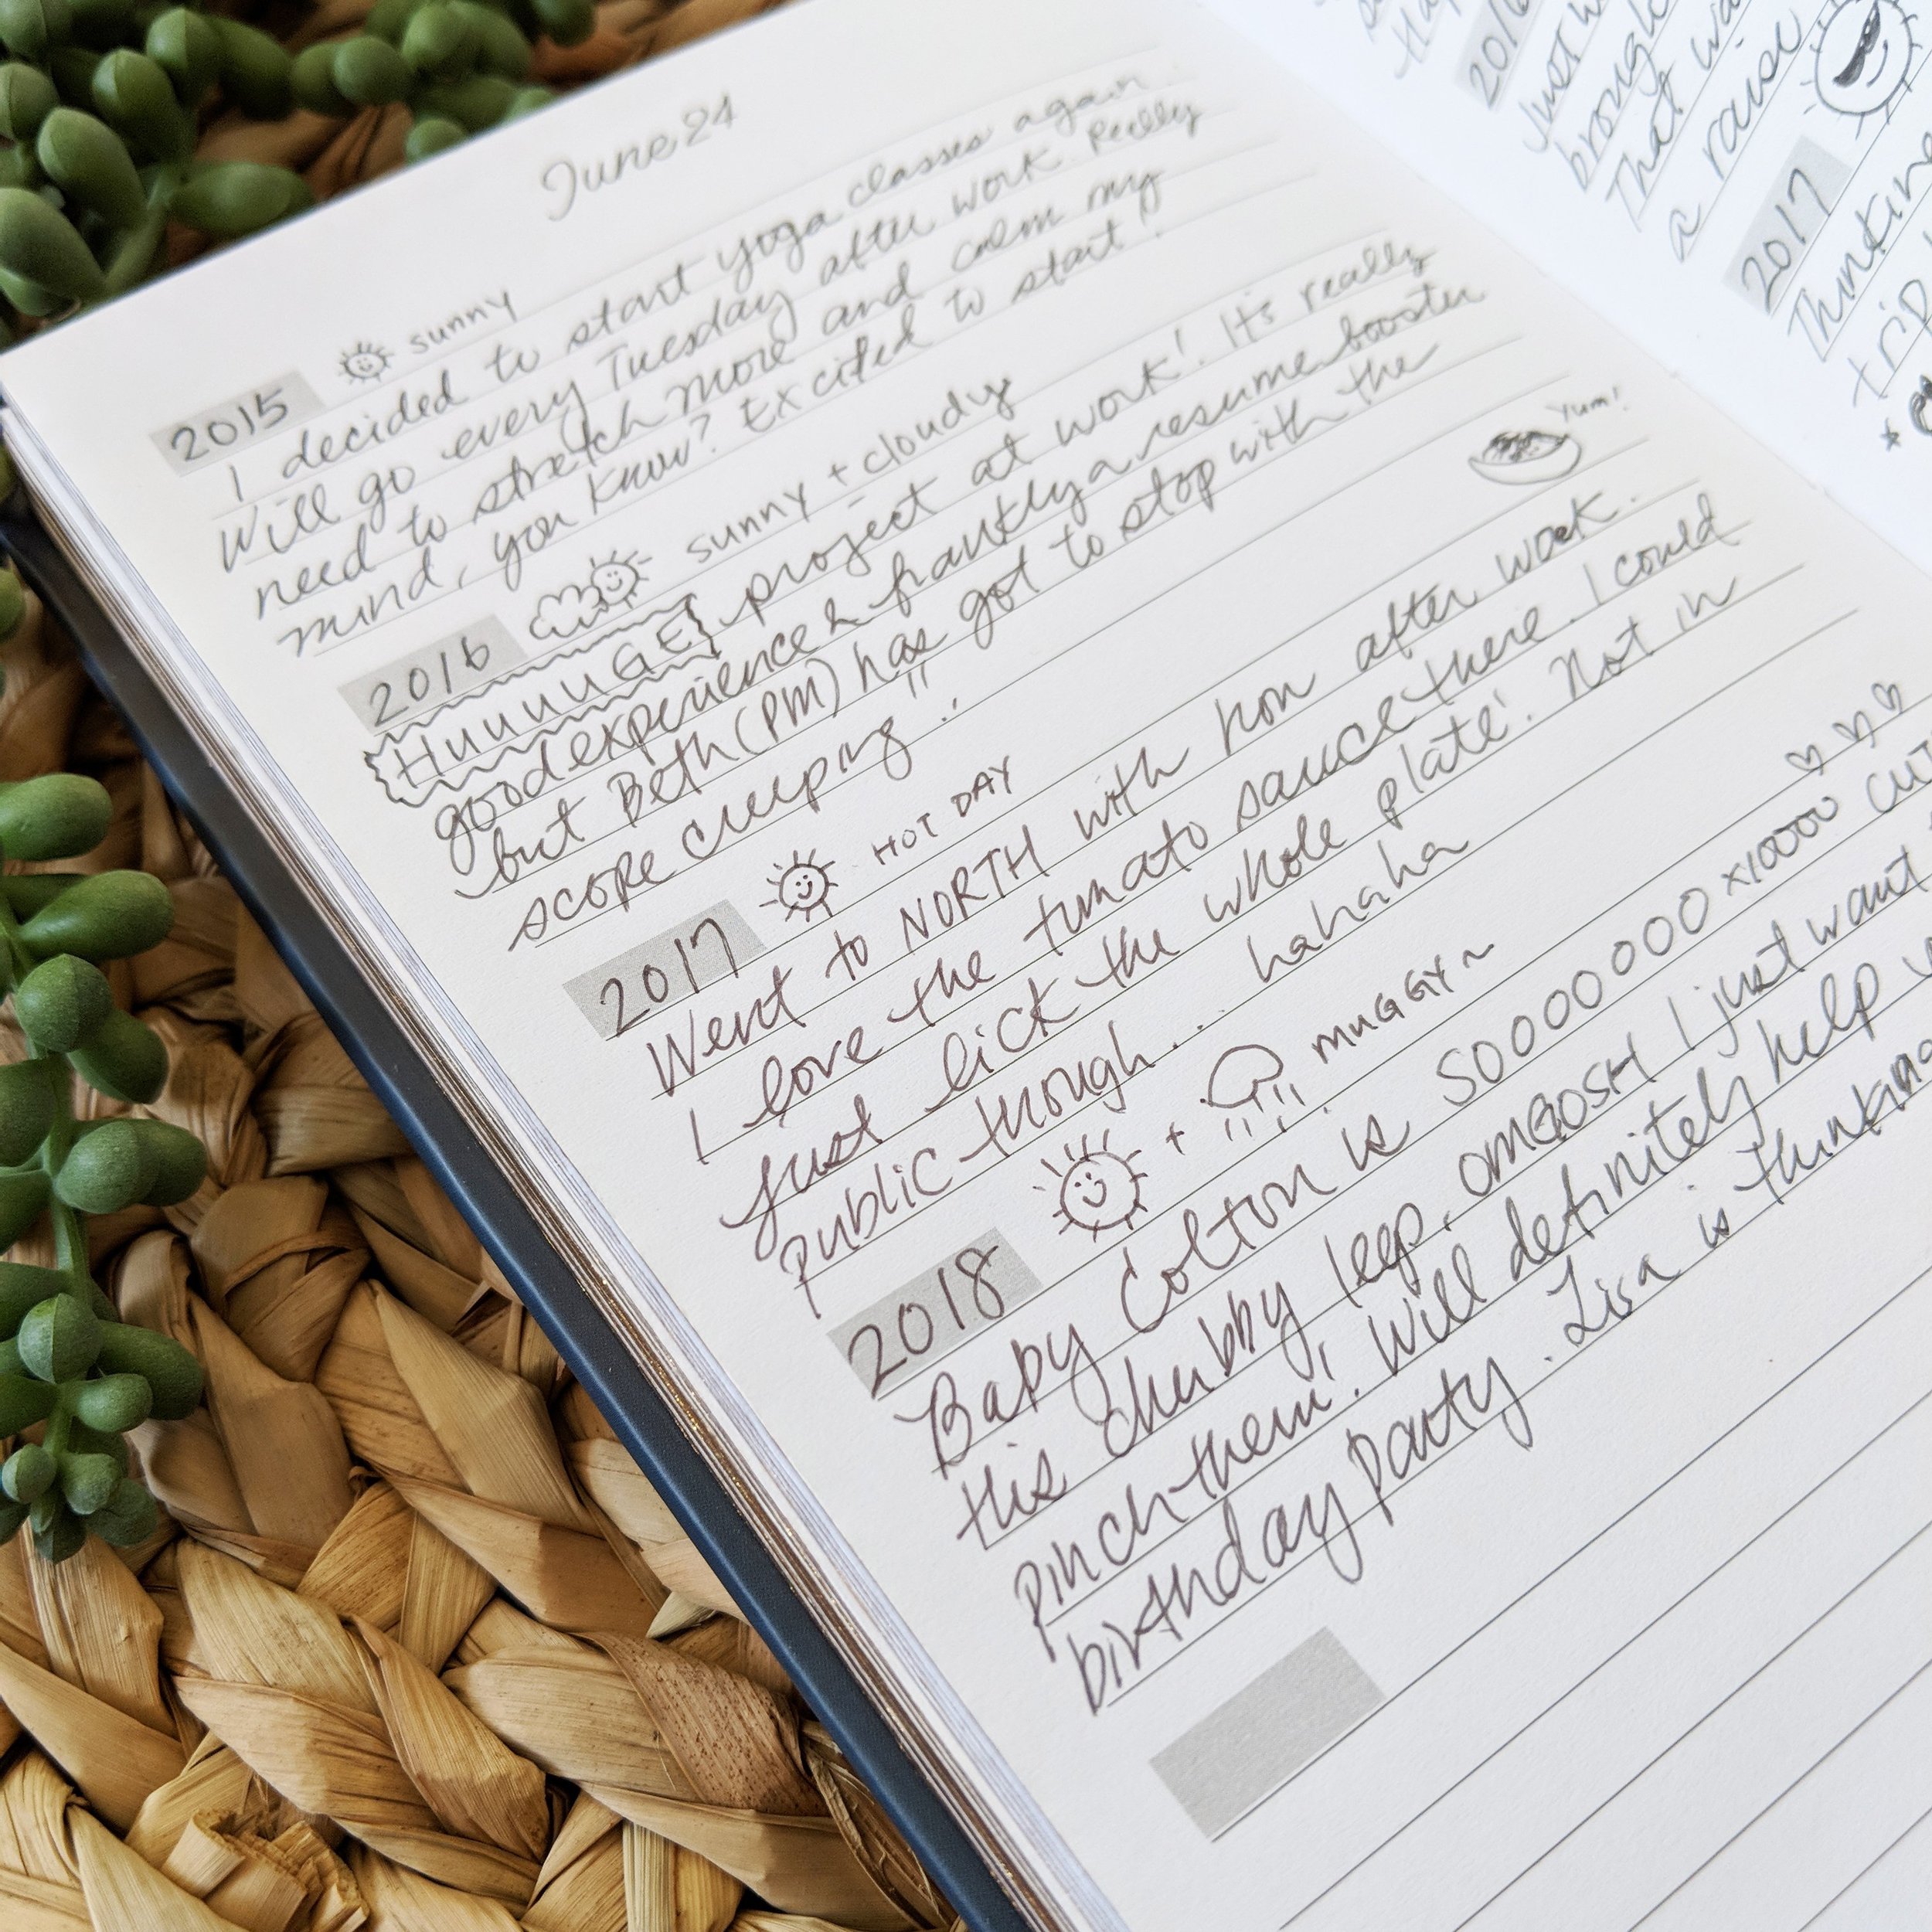 June 24
2015 sunny
I decided to start yoga classes again.
Will go every Tuesday after work. Really
need to stretch more and calm my
mind, you know? Excited to start!
2016 sunny + cloudy
HUUUUGE project at work! It's really
good experience & frankly a resume booster
but Beth (PM) has got to stop with the
scope creeping!!
Yum!
2017 HOT DAY
Went to NORTH with hon after work.
I love the tomato sauce there. I could
just lick the whole plate! Not in
public though... hahaha
2018 + MUGGY~
Baby Colton is SOOOOOOOO x10000
his chubby legs, OMGOSH I just want
pinch them! Will definitely help
birthday party. Lisa is thinking
2016
Just
That
a raise
2017
Thinking
trip